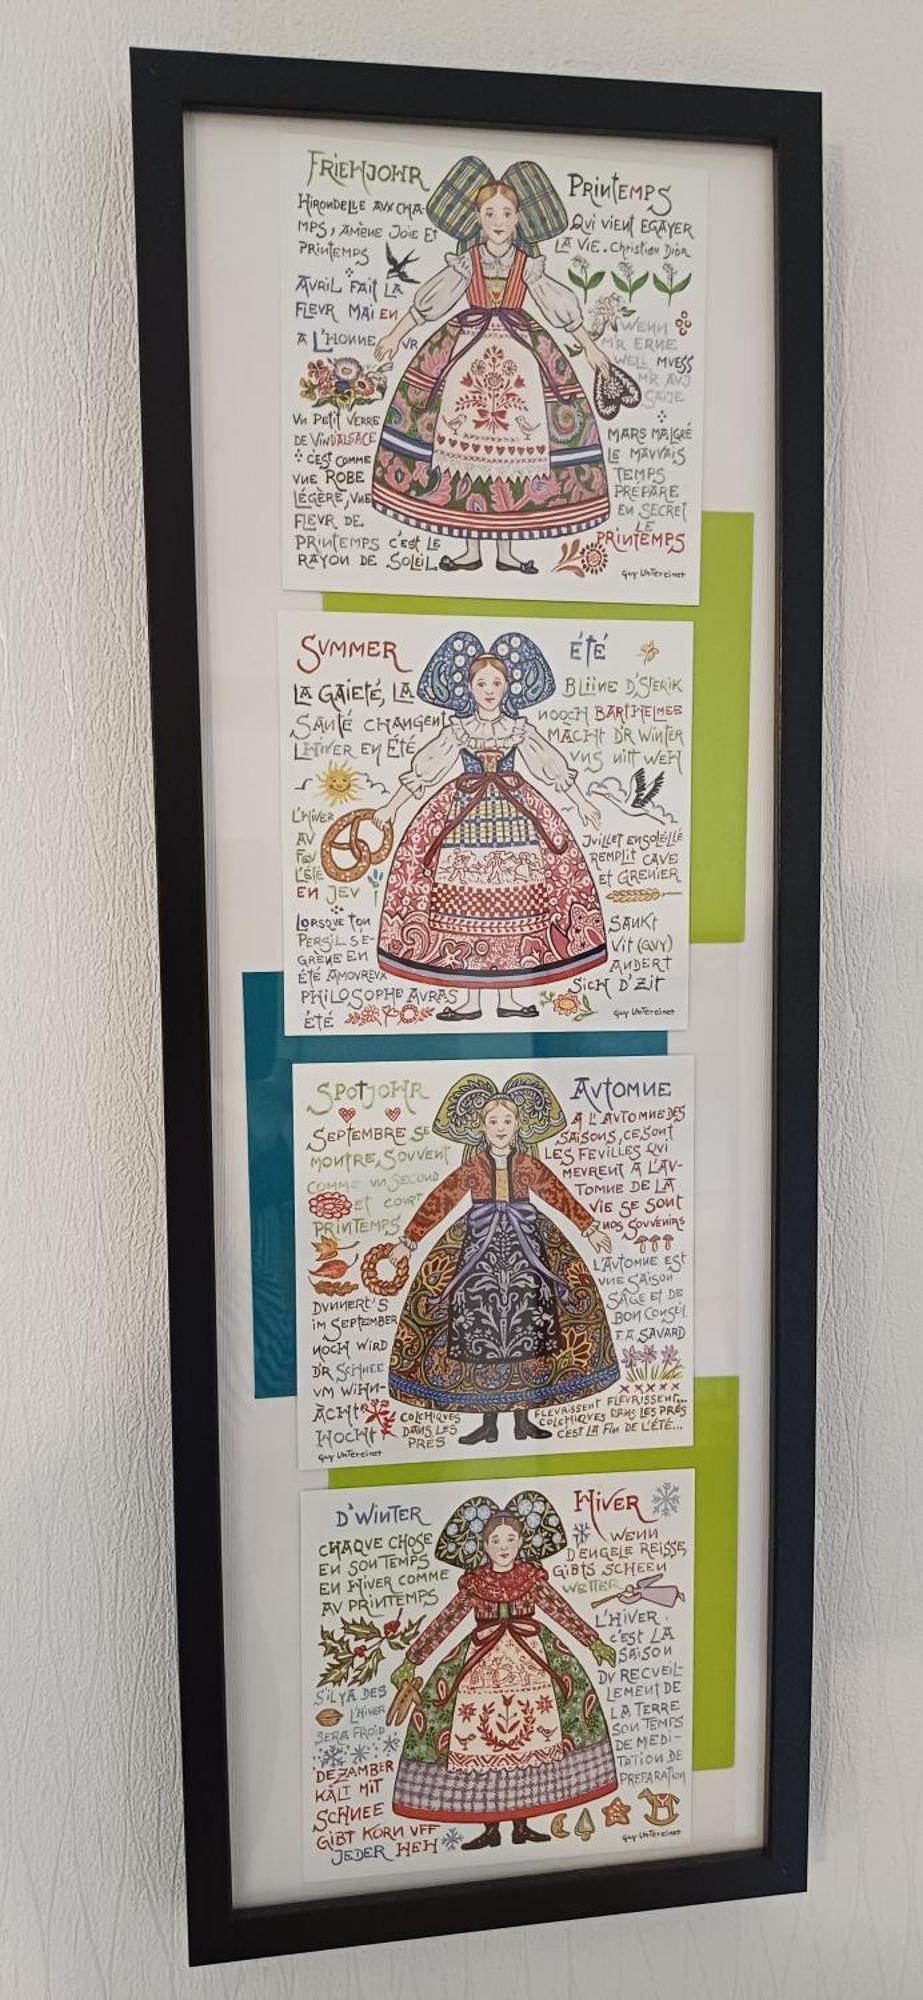 FRIEHJOHR
HIRONDELLE AUX CHA-
MPS, AMÈNE JOIE ET
PRINTEMPS
AVRIL FAIT LA
FLEUR MAI EN
A L'HONNEUR
UN PETIT VERRE
DE VIN D'ALSACE
C'EST COMME
UNE ROBE
LÉGÈRE, UNE
FLEUR DE
PRINTEMPS C'EST LE
RAYON DE SOLEIL
PRINTEMPS
QUI VIENT EGAYER
LA VIE. Christian Dior
WENN
M'R ERNE
WELL MUESS
M'R AUJ
SAIJE
MARS MALGRÉ
LE MAUVAIS
TEMPS
PRÉPARE
EN SECRET
LE
PRINTEMPS
Guy Untereiner
SUMMER
LA GAIETÉ, LA
SANTÉ CHANGENT
L'HIVER EN ÉTÉ
L'HIVER
AU
FEU
L'ÉTÉ
EN JEU
LORSQUE TON
PERSIL SE-
GRÈNE EN
ÉTÉ AMOUREUX
PHILOSOPHE AURAS
ÉTÉ
ÉTÉ
BLIINE D'STERIK
NOOCH BARTHELMEE
MACHT D'R WINTER
UNS NITT WEH
JUILLET ENSOLEILLÉ
REMPLIT CAVE
ET GRENIER
SANKT
VIT (GUY)
ANDERT
SICH D'ZIT
Guy Untereiner
SPOTJOHR
SEPTEMBRE SE
MONTRE, SOUVENT
COMME UN SECOND
ET COURT
PRINTEMPS
DUNNERT'S
IM SEPTEMBER
NOCH WIRD
D'R SCHNEE
UM WIHN-
ÄCHT
HOCH
COLCHIQUES
DANS LES
PRÉS
Guy Untereiner
AUTOMNE
A L'AUTOMNE DES
SAISONS, CE SONT
LES FEUILLES QUI
MEURENT A L'AU-
TOMNE DE LA
VIE SE SONT
NOS SOUVENIRS
L'AUTOMNE EST
UNE SAISON
SAGE ET DE
BON CONSEIL
F.A SAVARD
FLEURISSENT FLEURISSENT...
COLCHIQUES DANS LES PRÉS
C'EST LA FIN DE L'ÉTÉ...
D'WINTER
CHAQUE CHOSE
EN SON TEMPS
EN HIVER COMME
AU PRINTEMPS
S'IL Y A DES
L'HIVER
SERA FROID
DEZAMBER
KÀLT MIT
SCHNEE
GIBT KORN UFF
JEDER HEH
HIVER
WENN
D'ENGELE REISSE,
GIBTS SCHEEN
WETTER
L'HIVER
C'EST LA
SAISON
DU RECUEIL-
LEMENT DE
LA TERRE
SON TEMPS
DE MEDI-
TATION DE
PREPARATION
Guy Untereiner